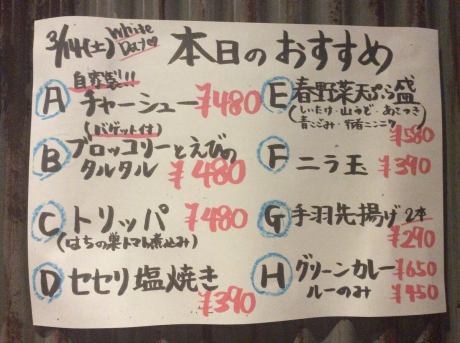 3/14(土) White Day♡
本日のおすすめ
自家製!!
A チャーシュー ¥480
(バゲット付)
B ブロッコリーとえびの
タルタル ¥480
C トリッパ ¥480
(はちの巣トマト煮込み)
D セセリ塩焼き
¥390
E 春野菜天ぷら盛
(しいたけ・山うど・あさつき
青じそみ・行者ニンニク)
¥580
F ニラ玉 ¥390
G 手羽先揚げ 2本
¥290
H グリーンカレー ¥650
ルーのみ ¥450